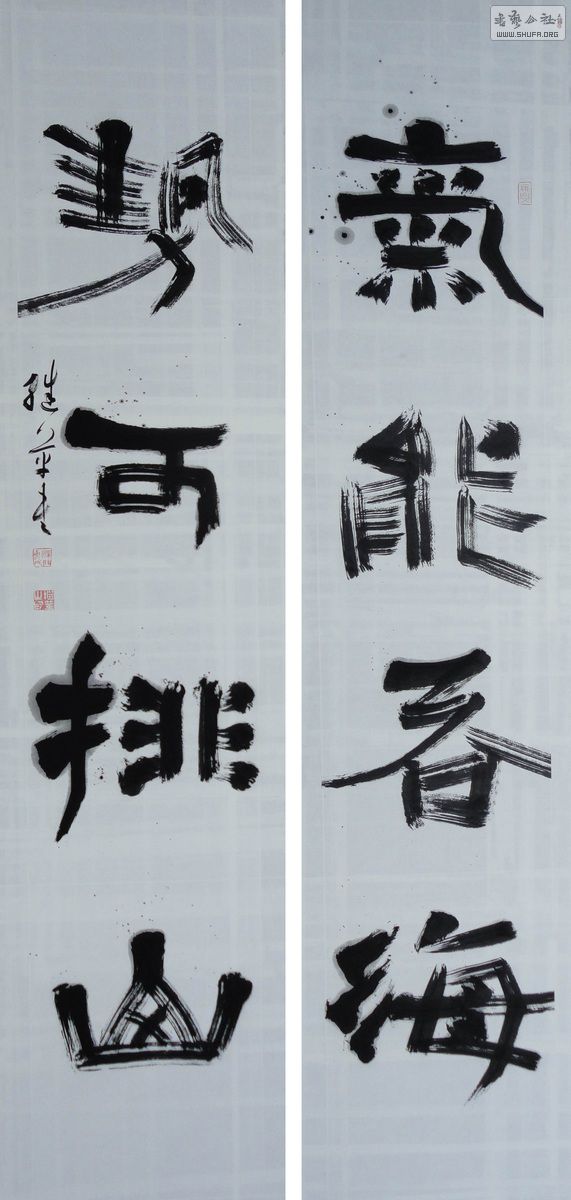 氣能吞海
勢可排山
書藝公社
WWW.SHUFA.ORG